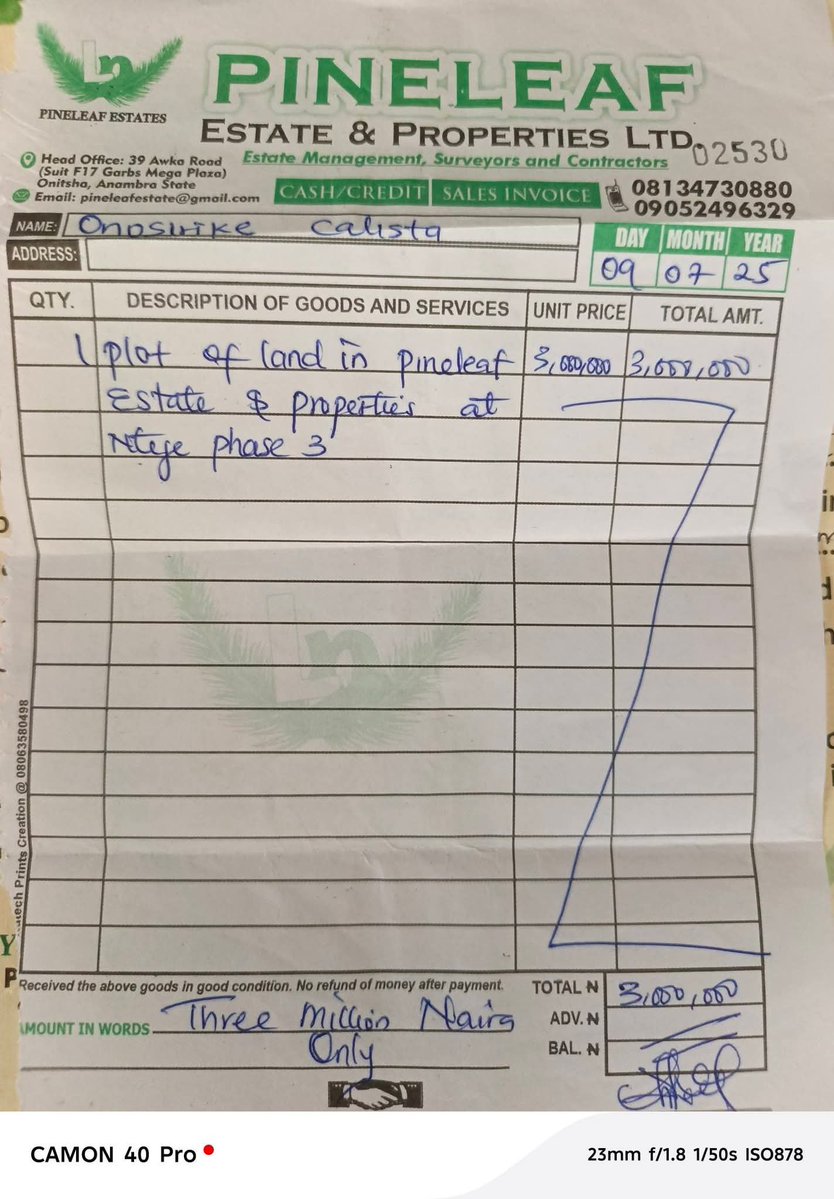 Ln
PINELEAF ESTATES
PINELEAF
ESTATE & PROPERTIES LTD.
02530
Head Office: 39 Awka Road
(Suit F17 Garbs Mega Plaza)
Onitsha, Anambra State
Email: pineleafestate@gmail.com
Estate Management, Surveyors and Contractors
CASH/CREDIT SALES INVOICE
08134730880
09052496329
NAME: Onosirike Calista
ADDRESS:
DAY MONTH YEAR
09 07 25
QTY. DESCRIPTION OF GOODS AND SERVICES UNIT PRICE TOTAL AMT.
1 plot of land in pineleaf 3,000,000 3,000,000
Estate & properties at
Nteje phase 3
Ln
Prints Creation @ 08063580498
Received the above goods in good condition. No refund of money after payment.
TOTAL ₦ 3,000,000
AMOUNT IN WORDS Three Million Naira
Only
ADV. ₦
BAL. ₦
CAMON 40 Pro
23mm f/1.8 1/50s ISO878